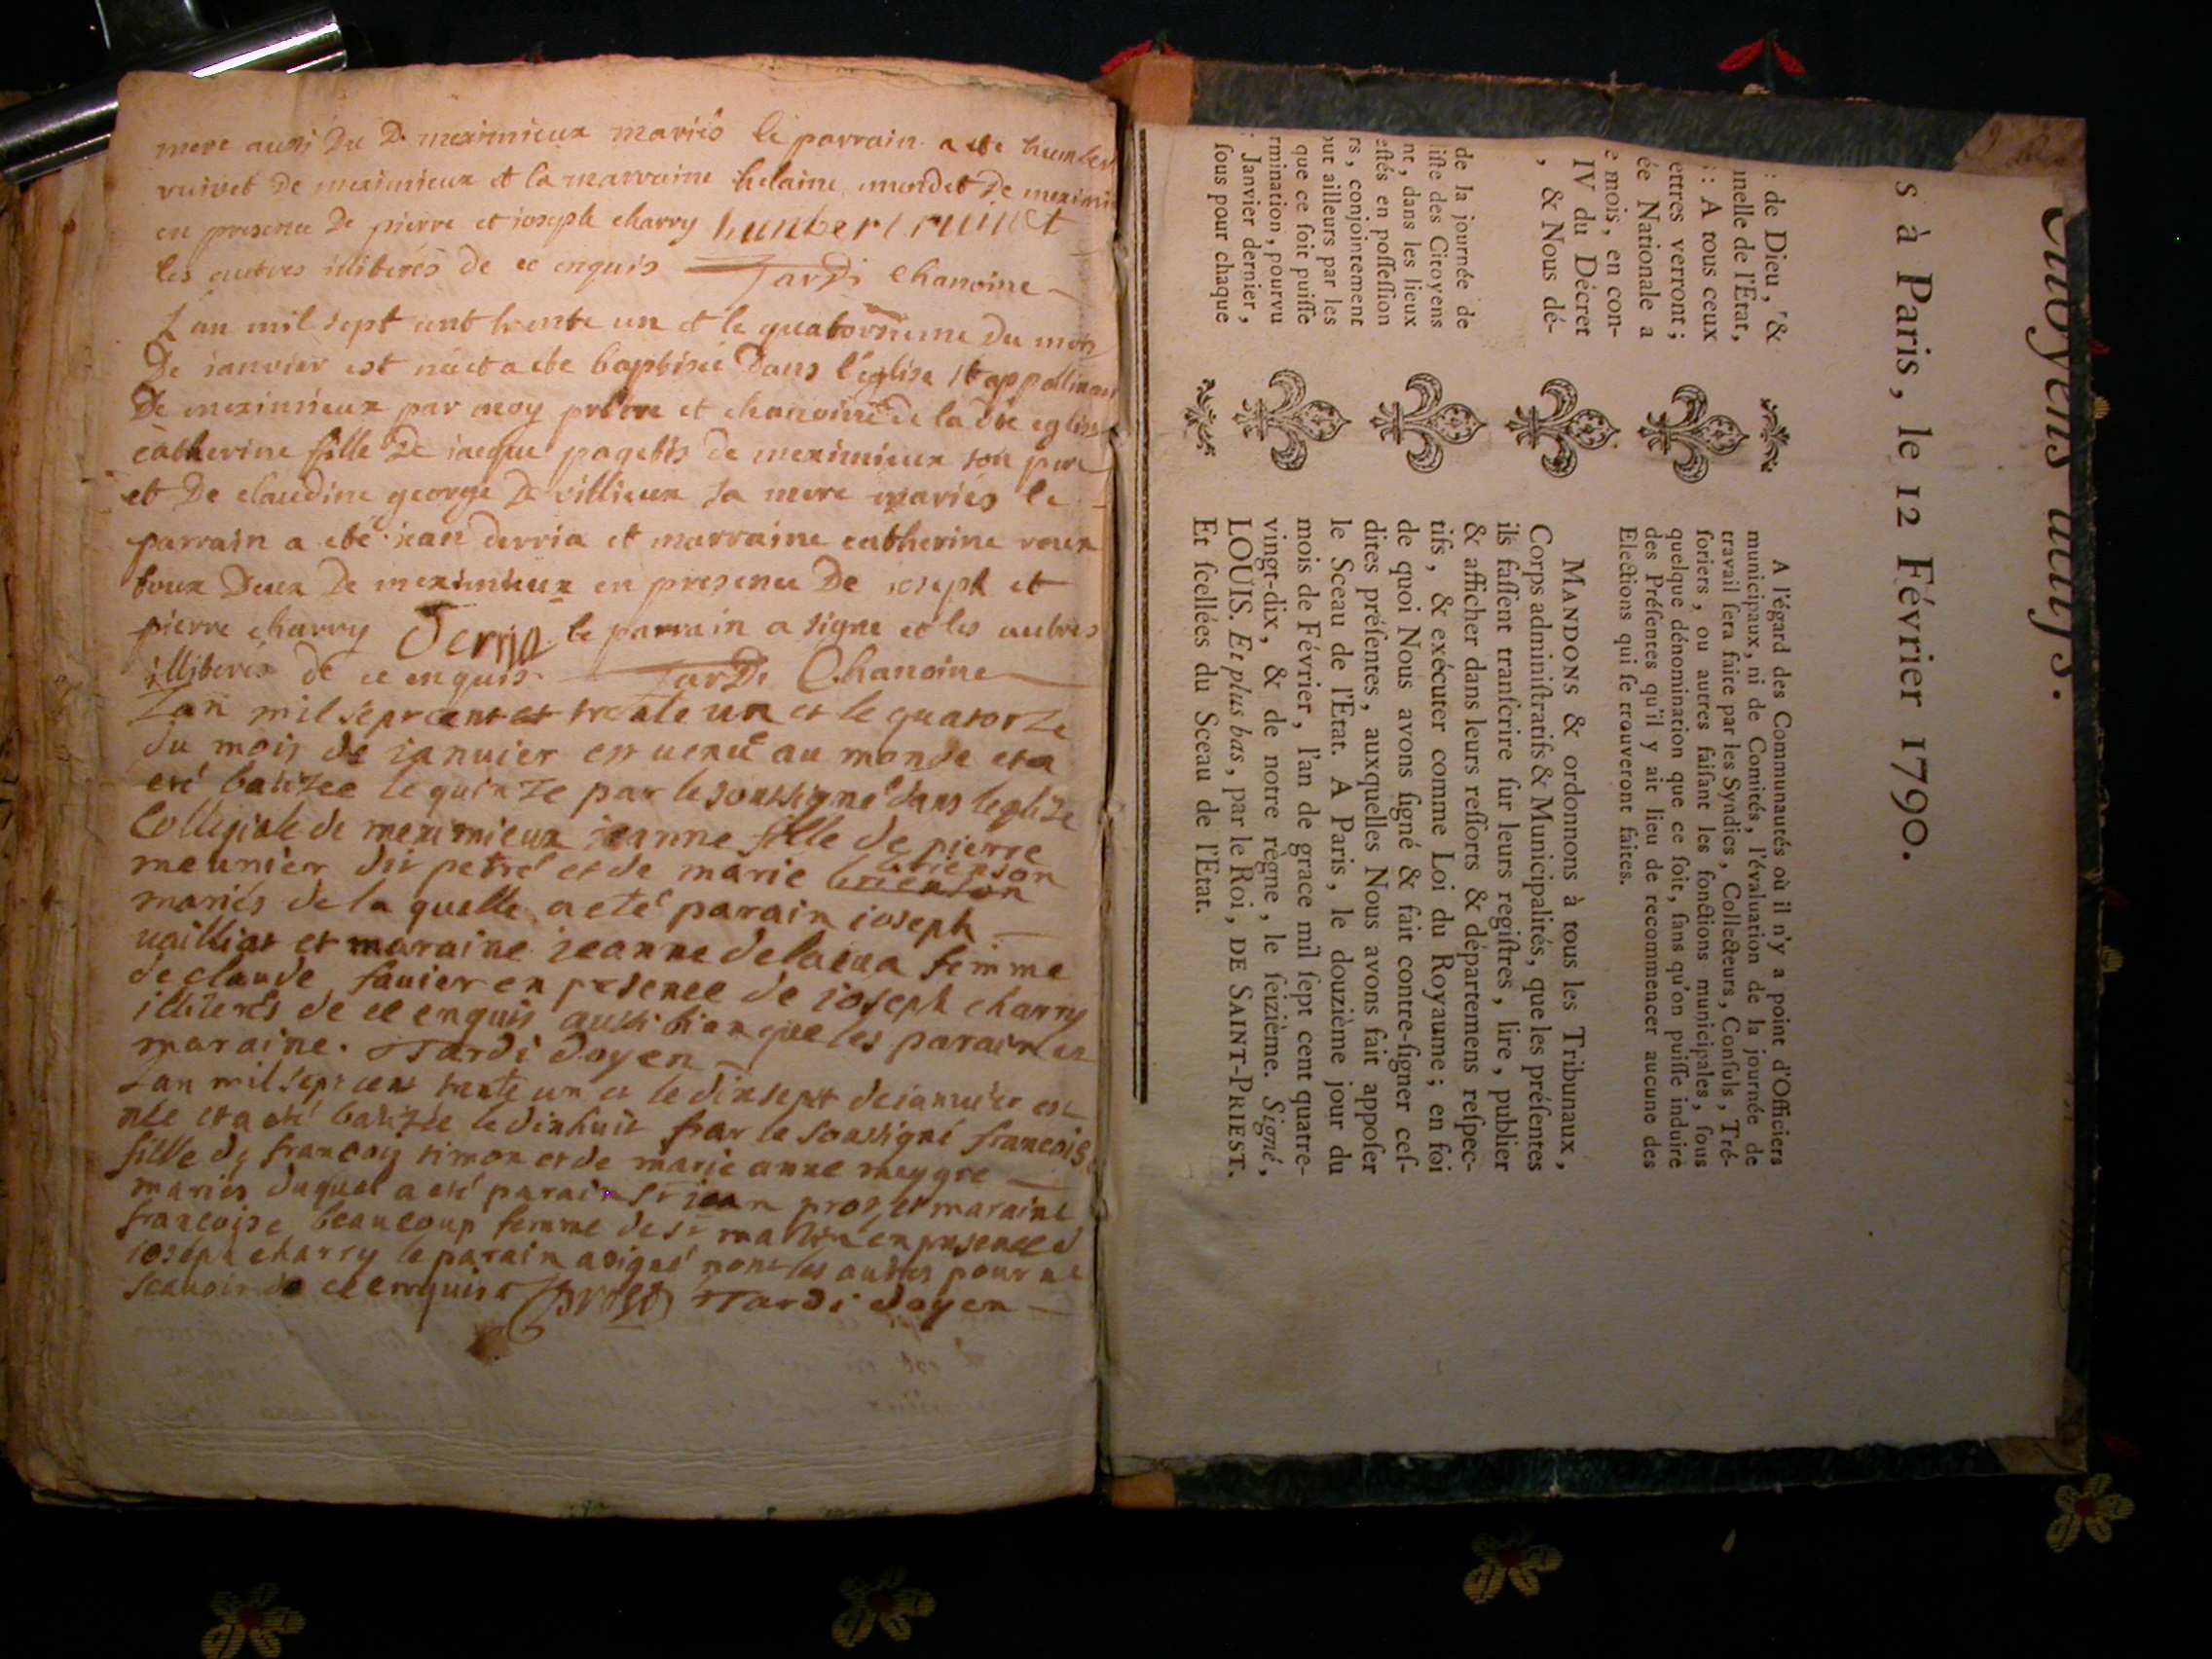 mere aussi du D. meximieux mariés le parrain a ete humber
ruivet De meximieux et la marraine helaine mendet De meximi
en presence De pierre et ioseph charry humbert ruiuet
les autres illiterés de ce enquis Jardi Chanoine
L'an mil sept cent trente un et le quatorzieme du mois
De ianvier est née et a ete baptisée Dans l'église St appollinaire
De meximieux par moy prêtre et chanoine de la dte eglise
catherine fille De iacque pagets de meximieux son pere
et De claudine george De villieux sa mere mariés le
parrain a eté iean derria et marraine catherine roux
tous Deux De meximieux en presence De ioseph et
pierre charry Derria le parrain a signe et les autres
illiterés de ce enquis Jardi Chanoine
Lan mil sept cent et trente un et le quatorze
du mois de ianuier est uenue au monde et a
eté batizee le quinze par le soussigné dans leglize
Collegiale de meximieux ieanne fille de pierre
meunier dit petré et de marie
mariés de la quelle a eté parain ioseph
uailliat et maraine ieanne delacua femme
de claude fauier en presence de ioseph charry
illiterés de ce enquis aussi bian que les parain et
maraine. Jardi doyen
Lan mil sept cent trente un et le dixsept de ianuier est
née et a eté batizée le dixhuit par le soussigné francoise
fille de francois simon et de marie anne meygre
mariés duquel a eté parain sr iean prost et maraine
francoise beaucoup femme de sr en presence d
ioseph charry le parain a signé non les autres pour ne
scauoir de ce enquis Prost Jardi doyen
Citoyens actifs.
s à Paris, le 12 Février 1790.
: de Dieu, &
nnelle de l'Etat,
: A tous ceux
ettres verront ;
ée Nationale a
e mois, en con-
IV du Décret
, & Nous dé-
de la journée de
liſte des Citoyens
nt, dans les lieux
eſtés en poſſeſſion
rs, conjointement
out ailleurs par les
que ce ſoit puiſſe
rmination, pourvu
Janvier dernier,
ſous pour chaque
A l'égard des Communautés où il n'y a point d'Officiers
municipaux, ni de Comités, l'évaluation de la journée de
travail ſera faite par les Syndics, Collecteurs, Conſuls, Tré-
ſoriers, ou autres faiſant les fonctions municipales, ſous
quelque dénomination que ce ſoit, ſans qu'on puiſſe induire
des Préſentes qu'il y ait lieu de recommencer aucune des
Elections qui ſe trouveront faites.
MANDONS & ordonnons à tous les Tribunaux,
Corps adminiſtratifs & Municipalités, que les préſentes
ils faſſent tranſcrire ſur leurs regiſtres, lire, publier
& afficher dans leurs reſſorts & départemens reſpec-
tifs, & exécuter comme Loi du Royaume ; en foi
de quoi Nous avons ſigné & fait contre-ſigner ceſ-
dites préſentes, auxquelles Nous avons fait appoſer
le Sceau de l'Etat. A Paris, le douzième jour du
mois de Février, l'an de grace mil ſept cent quatre-
vingt-dix, & de notre règne, le ſeizième. Signé,
LOUIS. Et plus bas, par le Roi, DE SAINT-PRIEST.
Et ſcellées du Sceau de l'Etat.